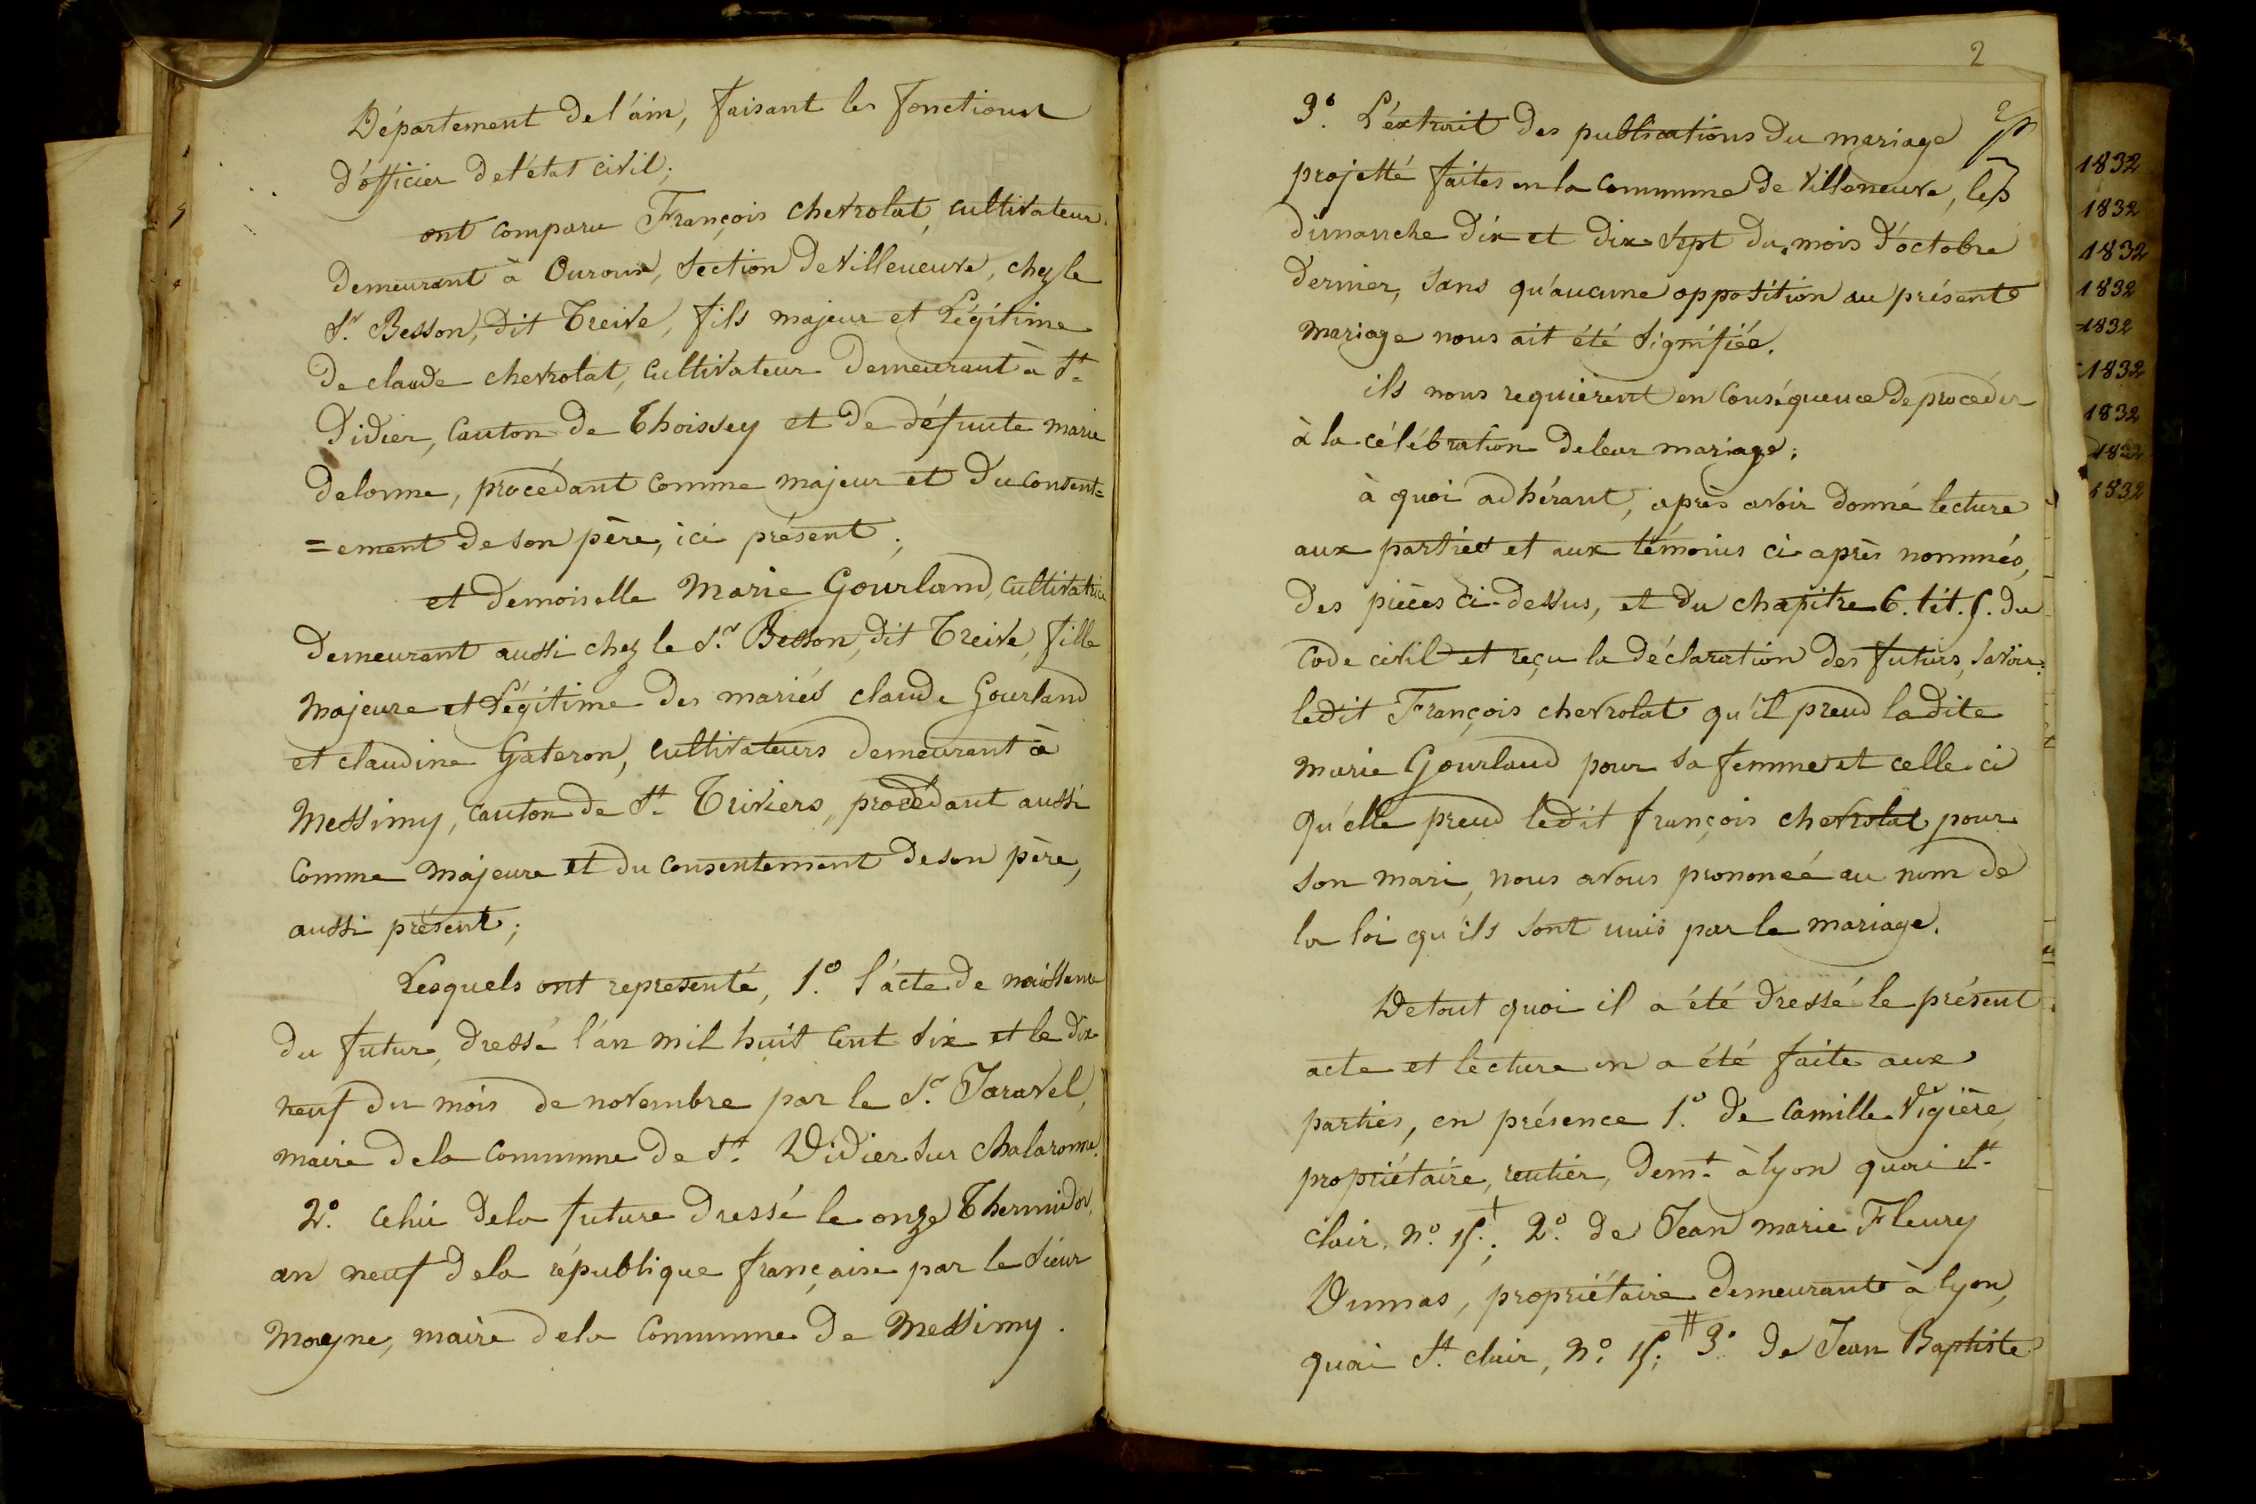 Département de l'ain, faisant les fonctions
d'officier de l'état civil;
ont comparu François chevrolat, cultivateur
demeurant à Ouroux, Section de villeneuve, chez le
Sr. Besson, dit Treive, fils majeur et Légitime
de claude chevrolat, cultivateur demeurant à St.
Didier, Canton de Thoissey et de défunte marie
delorme, procédant comme majeur et du consent=
=ement de son père, ici présent;
et demoiselle Marie Gourland, cultivatrice
demeurant aussi chez le Sr. Besson, dit Treive, fille
majeure et Légitime des mariés claude Gourland
et claudine Gateron, cultivateurs demeurant à
Messimy, canton de St. Triviers, procédant aussi
comme majeure et du consentement de son père,
aussi présent;
Lesquels ont representé, 1.° l'acte de naissance
du futur, dressé l'an mil huit cent six et le dix
neuf du mois de novembre par le Sr. Jaravel,
maire de la commune de St. Didier sur chalaronne.
2.° celui de la future dressé le onze Thermidor,
an neuf de la république française par le sieur
Moyne, maire de la commune de Messimy.
2
3.° L'éxtrait des publications du mariage
projetté faites en la commune de villeneuve, les
dimanche dix et dix sept du mois d'octobre
dernier, sans qu'aucune opposition au présent
mariage nous ait été signifiée.
ils nous requièrent en conséquence de procéder
à la célébration de leur mariage;
à quoi adhérant, après avoir donné lecture
aux parties et aux témoins ci après nommés,
des pièces ci-dessus, et du chapitre 6. tit. 5. du
code civil et reçu la déclaration des futurs, savoir:
ledit François chevrolat qu'il prend ladite
marie Gourland pour sa femme et celle ci
qu'elle prend ledit françois chevrolat pour
son mari, nous avons prononcé au nom de
la loi qu'ils sont unis par le mariage.
De tout quoi il a été dressé le présent
acte et lecture en a été faite aux
parties, en présence 1.° de Camille Vigière,
propriétaire, rentier, demt. à lyon quai St.
clair, n.° 15.†; 2.° de Jean marie Fleury
Dumas, propriétaire demeurant à lyon,
quai St. clair, n.° 15; # 3.° de Jean Baptiste
1832
1832
1832
1832
1832
1832
1832
1832
1832